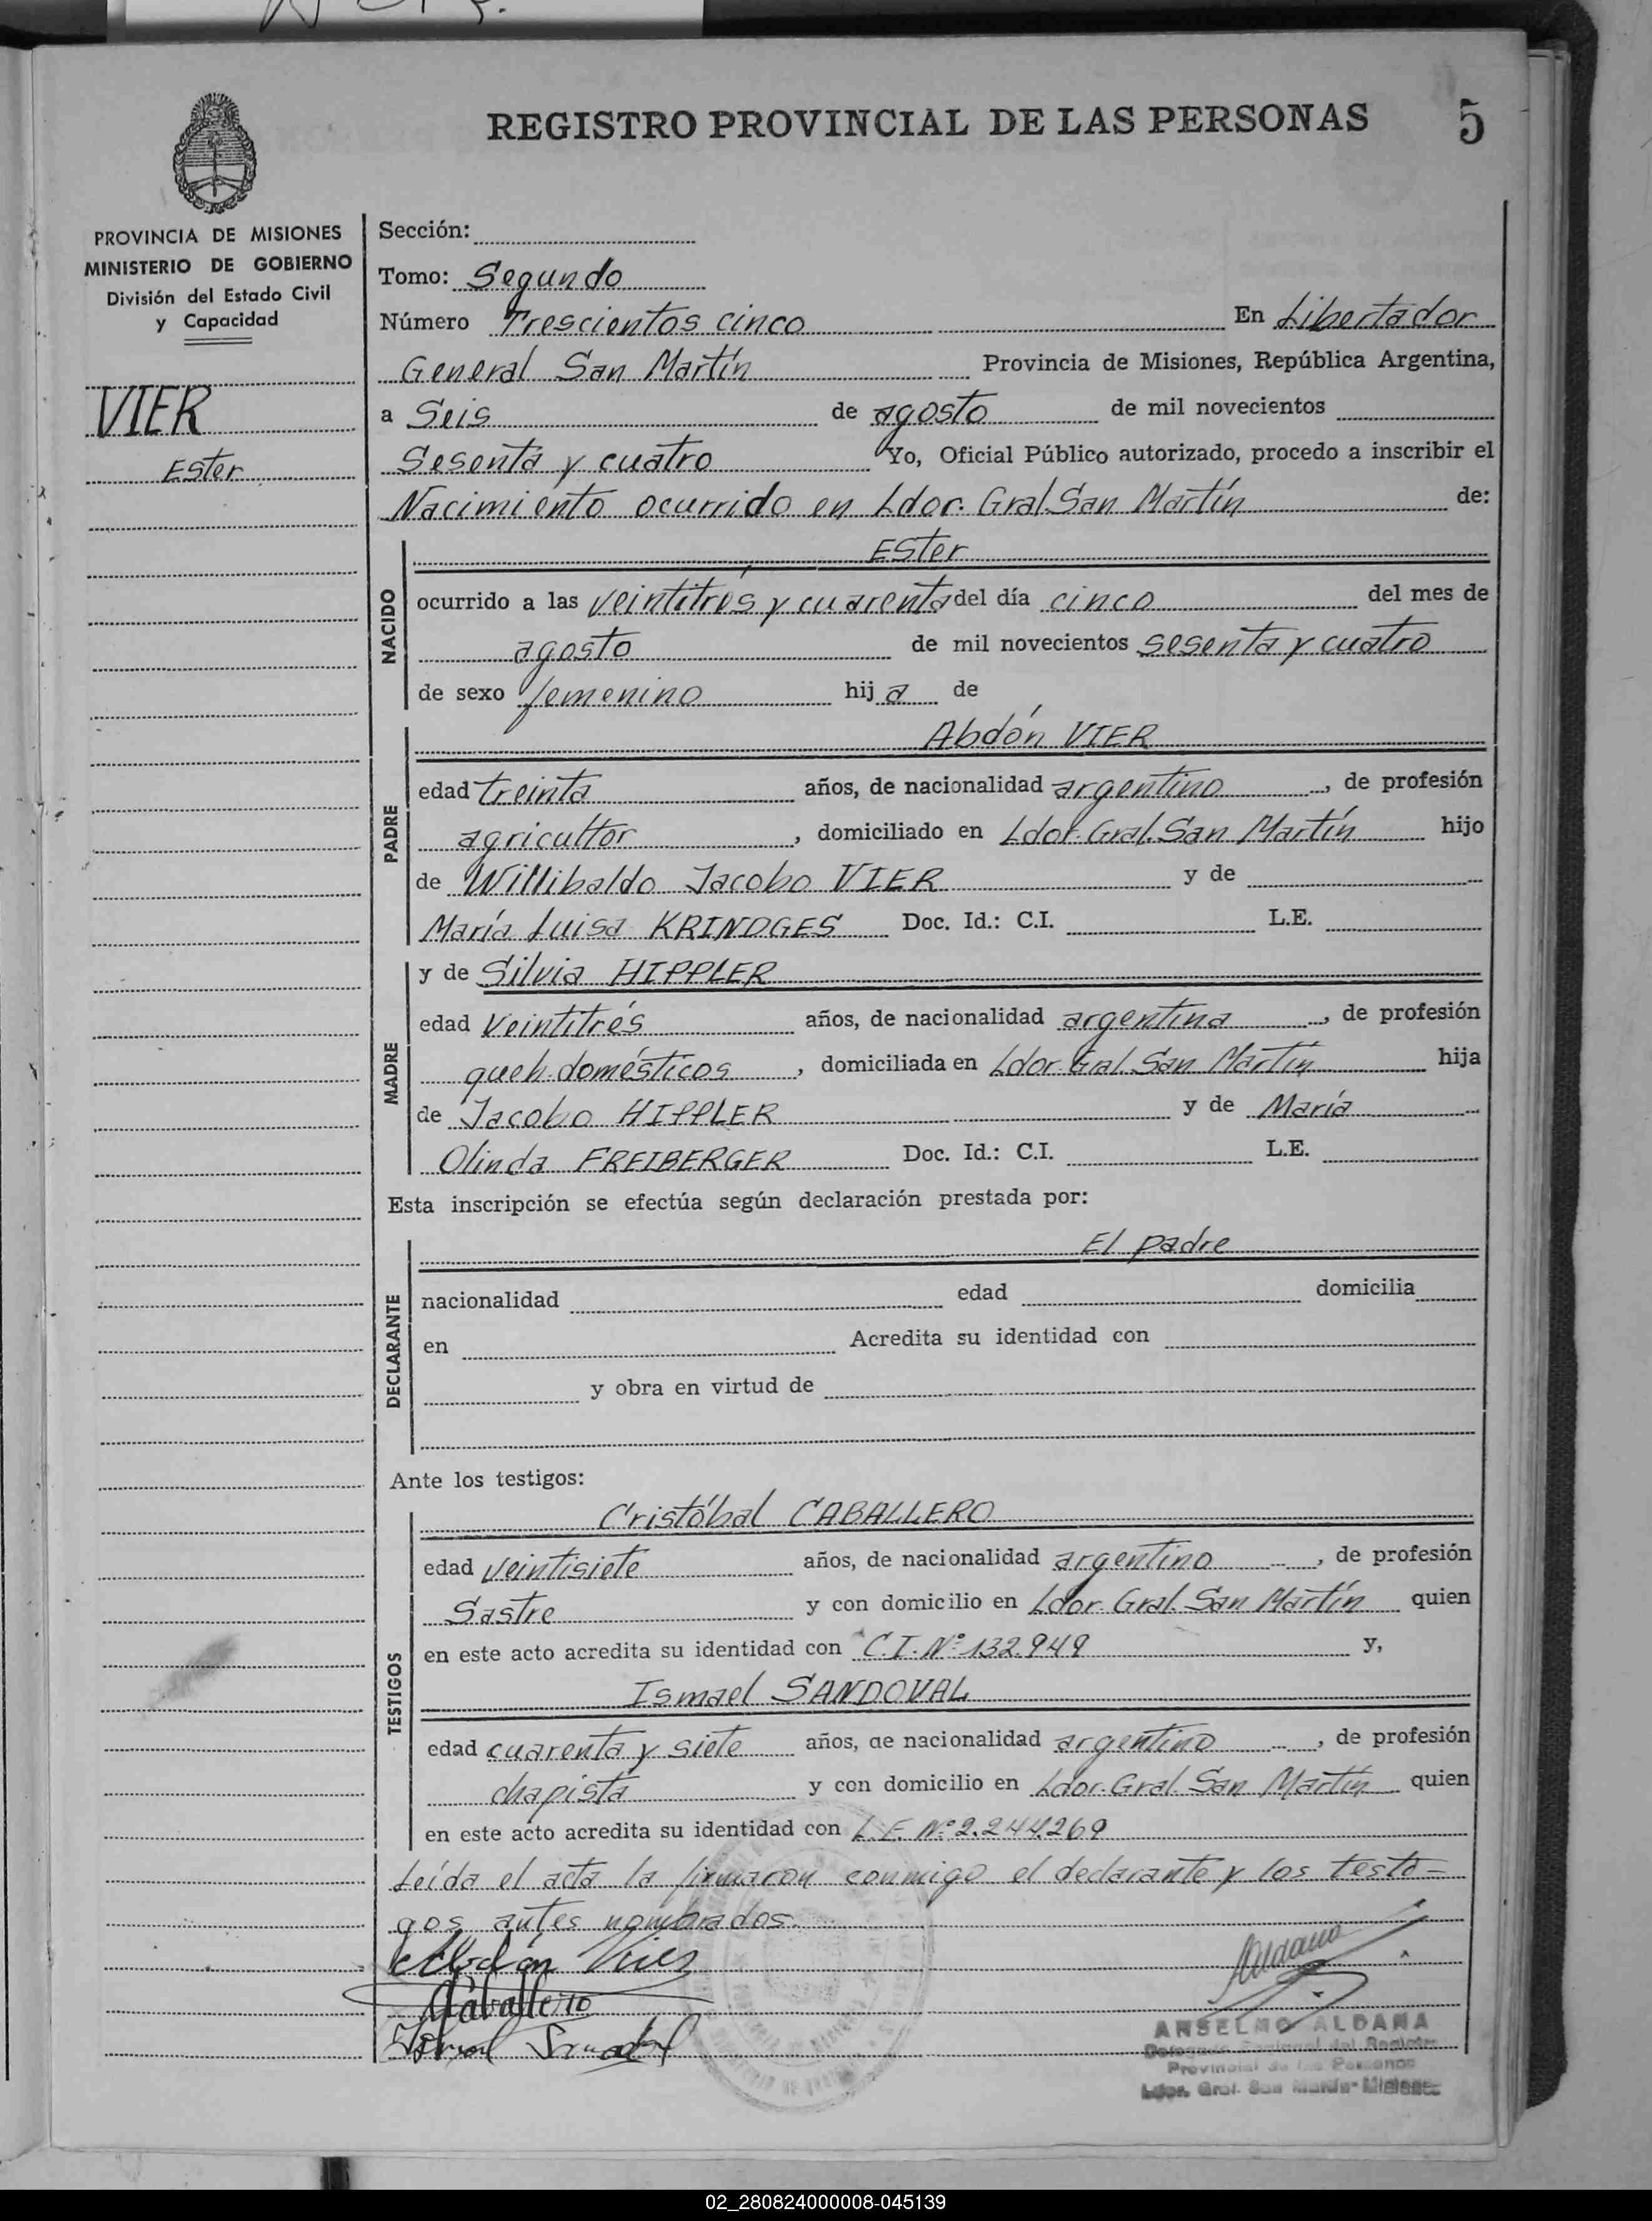 REGISTRO PROVINCIAL DE LAS PERSONAS 5
PROVINCIA DE MISIONES
MINISTERIO DE GOBIERNO
División del Estado Civil
y Capacidad
VIER
Ester
Sección:
Tomo: Segundo
Número Trescientos cinco En Libertador
General San Martín Provincia de Misiones, República Argentina,
a Seis de agosto de mil novecientos
Sesenta y cuatro Yo, Oficial Público autorizado, procedo a inscribir el
Nacimiento ocurrido en Ldor. Gral San Martín de:
NACIDO
Ester
ocurrido a las veintitrés y cuarenta del día cinco del mes de
agosto de mil novecientos sesenta y cuatro
de sexo femenino hij a de
PADRE
Abdón VIER
edad treinta años, de nacionalidad argentino, de profesión
agricultor, domiciliado en Ldor. Gral. San Martín hijo
de Willibaldo Jacobo VIER y de
María Luisa KRINDGES Doc. Id.: C.I. L.E.
MADRE
y de Silvia HIPPLER
edad Veintitrés años, de nacionalidad argentina, de profesión
queh. domésticos, domiciliada en Ldor. Gral. San Martín hija
de Jacobo HIPPLER y de María
Olinda FREIBERGER Doc. Id.: C.I. L.E.
Esta inscripción se efectúa según declaración prestada por:
DECLARANTE
El padre
nacionalidad edad domicilia
en Acredita su identidad con
y obra en virtud de
Ante los testigos:
TESTIGOS
Cristóbal CABALLERO
edad veintisiete años, de nacionalidad argentino, de profesión
Sastre y con domicilio en Ldor. Gral. San Martín quien
en este acto acredita su identidad con C.I. Nº 132.949 y,
Ismael SANDOVAL
edad cuarenta y siete años, de nacionalidad argentino, de profesión
chapista y con domicilio en Ldor. Gral. San Martín quien
en este acto acredita su identidad con L.E. Nº 2.244.269
Leída el acta la firmaron conmigo el declarante y los testi=
gos antes nombrados.
Abdón Vier
Caballero
Aldana
ANSELMO ALDANA
Delegado Regional del Registro
Provincial de las Personas
Ldor. Gral. San Martín - Misiones
02_280824000008-045139